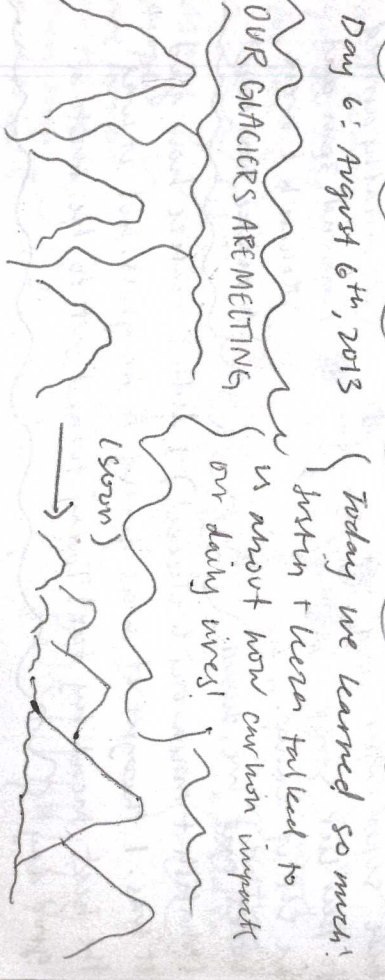 Day 6: August 6th, 2013
OUR GLACIERS ARE MELTING
(Today we learned so much!
Justin + talked to
us about how carbon impacts
our daily lives!
(soon)